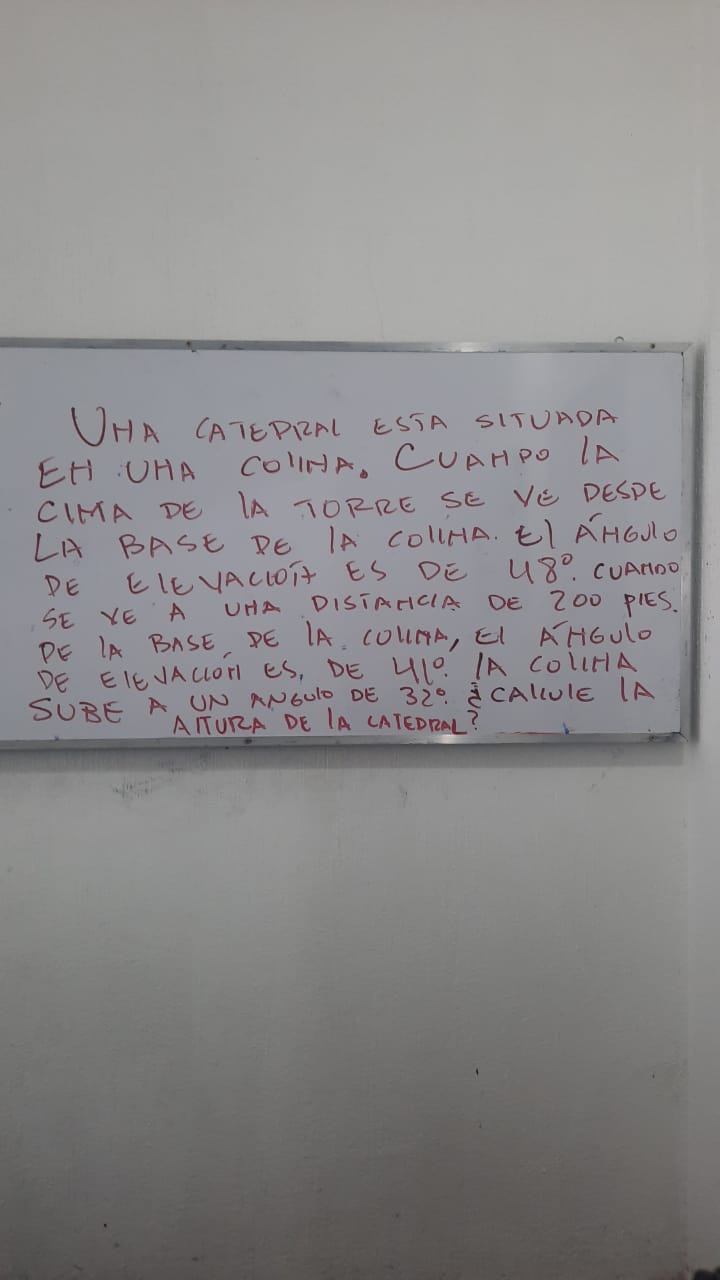 UNA CATEDRAL ESTA SITUADA
EN UNA COLINA. CUANDO LA
CIMA DE LA TORRE SE VE DESDE
LA BASE DE LA COLINA. El ÁNGULO
DE ElEVACIÓN ES DE 48°. CUANDO
SE VE A UNA DISTANCIA DE 200 PIES.
DE LA BASE DE LA COLINA, El ÁNGULO
DE ElEVACIÓN ES, DE 41°. LA COLINA
SUBE A UN ANGULO DE 32°. ¿ CALCULE LA
ALTURA DE LA CATEDRAL?